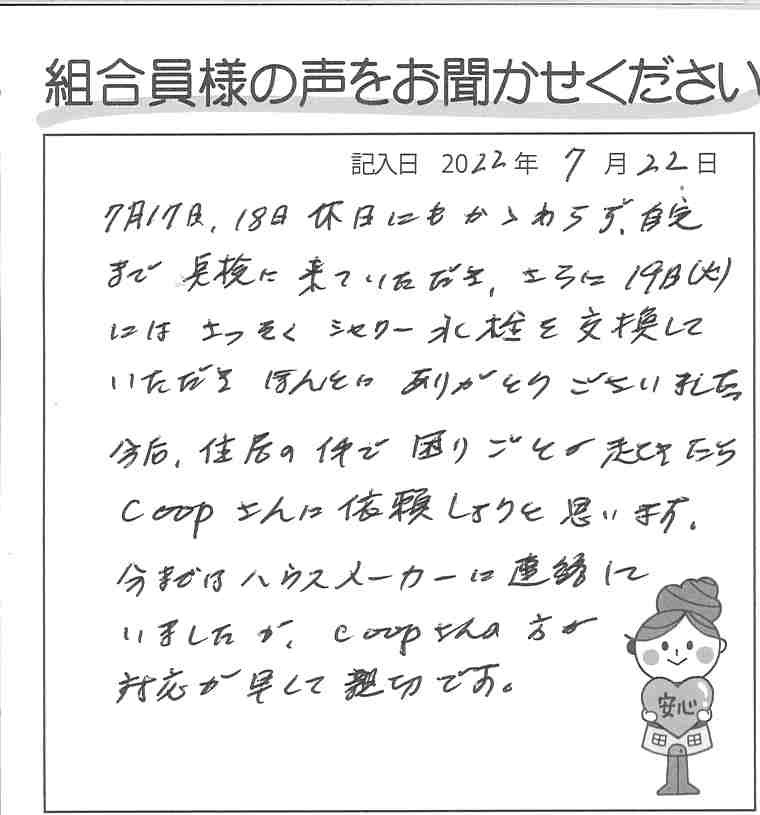 組合員様の声をお聞かせください
記入日 2022年 7月22日
7月17日、18日 休日にもかゝわらず、自宅
まで 点検に来ていただき、さらに 19日(火)
には さっそく シャワー水栓を交換して
いただき ほんとに ありがとうございました。
今后、住居の件で 困りごとが起きたら
Coopさんに依頼しようと思います。
今まではハウスメーカーに連絡して
いましたが、Coopさんの方が
対応が早くて親切です。
安心